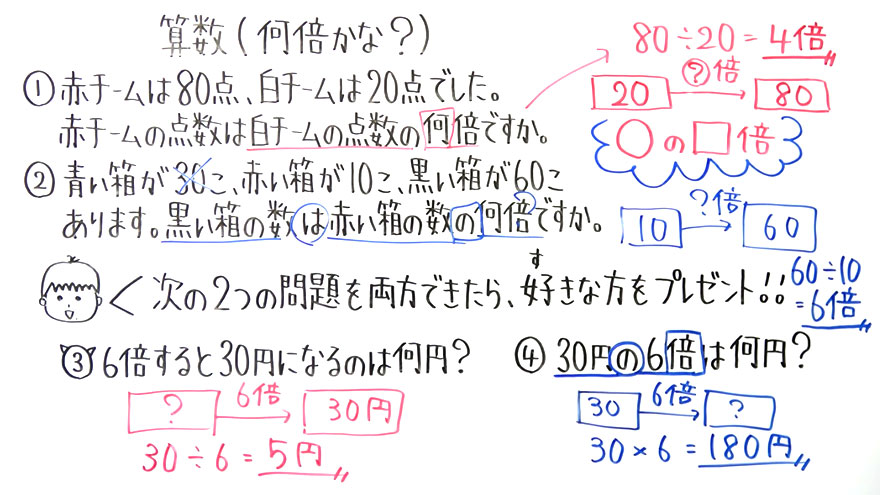 算数(何倍かな?)
①赤チームは80点、白チームは20点でした。
赤チームの点数は白チームの点数の何倍ですか。
80÷20=4倍
?倍
20
80
○の□倍
②青い箱が30こ、赤い箱が10こ、黒い箱が60こ
あります。黒い箱の数は赤い箱の数の何倍ですか。
?倍
10
60
60÷10
=6倍
す
次の2つの問題を両方できたら、好きな方をプレゼント!!
③6倍すると30円になるのは何円?
6倍
?
30円
30÷6=5円
④30円の6倍は何円?
6倍
30
?
30×6=180円